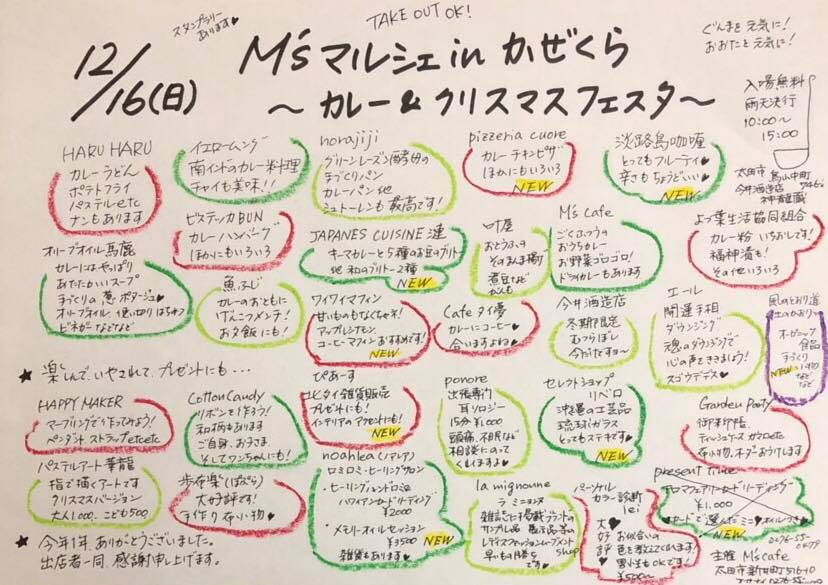 スタンプラリー
あります♥
TAKE OUT OK!
ぐんまを元気に!
おおたを元気に!
12/16(日)
M'sマルシェ in かぜくら
〜カレー&クリスマスフェスタ〜
入場無料
雨天決行
10:00〜
15:00
太田市
今井酒造店
HARU HARU
カレーうどん
ポテトフライ
パステルetc
ナンもあります
イエロームング
南インドのカレー料理
チャイも美味!!
norajiji
グリーンレーズン酵母の
手づくりパン
カレーパン 他
シュトーレンも最高です!
pizzeria cuore
カレーチキンピザ
ほかにもいろいろ
NEW
淡路島咖喱
とってもフルーティ♥
辛さもちょうどいい♥
NEW
ビステッカBUN
カレーハンバーグ
ほかにもいろいろ
JAPANES CUISINE 漣
キーマカレーと5種のお豆のブリトー
他 和のブリトー2種
NEW
叶屋
おとうふの
そのまま揚げ
煮豆など
M's Cafe
ごくふつうの
おうちカレー
お野菜ゴロゴロ!
ドライカレーもあります
よつ葉生活協同組合
カレー粉 いちおしです!
福神漬も!
その他いろいろ
オリーブオイル馬鹿
カレーにはやっぱり
あたたかいスープ
手づくりの葱ポタージュ♥
オリーブオイル 使い切りはちみつ
ビネガーなどなど
魚ふじ
カレーのおともに
げんこつメンチ!
お夕飯にも!
ワイワイマフィン
甘いものもなくちゃネ!
アップルシナモン
コーヒーマフィンおすすめです!
NEW
Cafe タイ夢
カレーにコーヒー♥
合いますよね♥
今井酒造店
冬期限定
むつらぼし
今がたです〜
エール
開運手相
ダウジング
魂のダウジングで
心の声をききましょう!
スゴウデデス♥
風のとおり道
土のかおり
オーガニック
食品
手づくり
小物
などなど
NEW
★楽しんで、いやされて、プレゼントにも・・・
HAPPY MAKER
マーブリングで作ってみよう!
ペンダント ストラップetcetc
Cotton Candy
リボンを作ろう!
和柄もあります
ご自身、お子さま
そしてワンちゃんにも!
ぴあーす
エヒタイ雑貨販売
プレゼントにも!
インテリアのアクセントにも!
NEW
ponore
出張専門
耳リロジー
15分¥1000
頭痛、不眠など
相談にのって
くれますよ♥
セレクトショップ
リベロ
沖縄の工芸品
琉球ガラス
とってもステキです♥
NEW
Garden Party
御朱印帳
ティッシュケース ガウロetc
布小物、オーダーおうけします
パステルアート華龍
指で描くアートです
クリスマスバージョン
大人1000、こども500
歩布楽(ぽぷら)
大好評です!
手作り布小物♥
noahlea(ノアレア)
ロミロミ・ヒーリングサロン
・ヒーリングルドロミと
ハワイアンカードリーディング
¥2000
・メモリーオイルセッション
¥3500
雑貨もあります
NEW
la mignoune
ラ・ミニョンヌ
雑誌にも掲載ブランドの
サンプル品
レディスファッションイーブメント
shop
早いもの勝ち
です♥
パーソナル
カラー診断
lei
大好評♥
お似合いの
色を教えてくれます!
男性もOKです!
¥500〜
present time
アロマフェアリーカードリーディング
¥1,000
カードで選んだミニ♥オイルつき♥
NEW
★今年1年、ありがとうございました。
出店者一同、感謝申し上げます。
0276-55-0479
主催 M's cafe
太田市新井町516-10